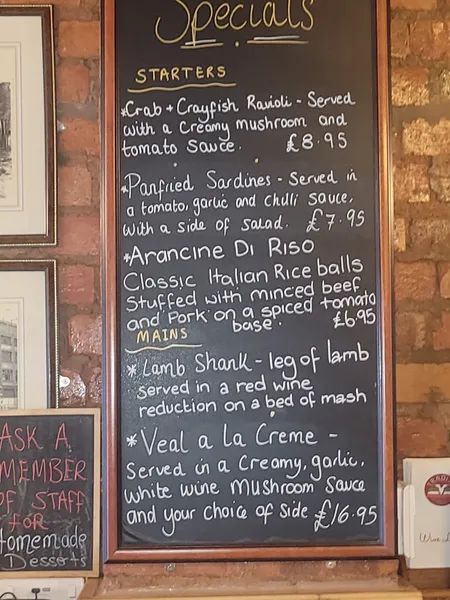 Specials
STARTERS
*Crab + Crayfish Ravioli - Served
with a creamy mushroom and
tomato sauce. £8.95
*Panfried Sardines - Served in
a tomato, garlic and chilli sauce,
with a side of salad. £7.95
*Arancine Di Riso
Classic Italian Rice balls
Stuffed with minced beef
and Pork on a spiced tomato
base. £6.95
MAINS
*Lamb Shank - leg of lamb
served in a red wine
reduction on a bed of mash
*Veal a la Creme -
Served in a creamy, garlic,
white wine mushroom sauce
and your choice of side £16.95
ASK A
MEMBER
OF STAFF
FOR
Homemade
Desserts